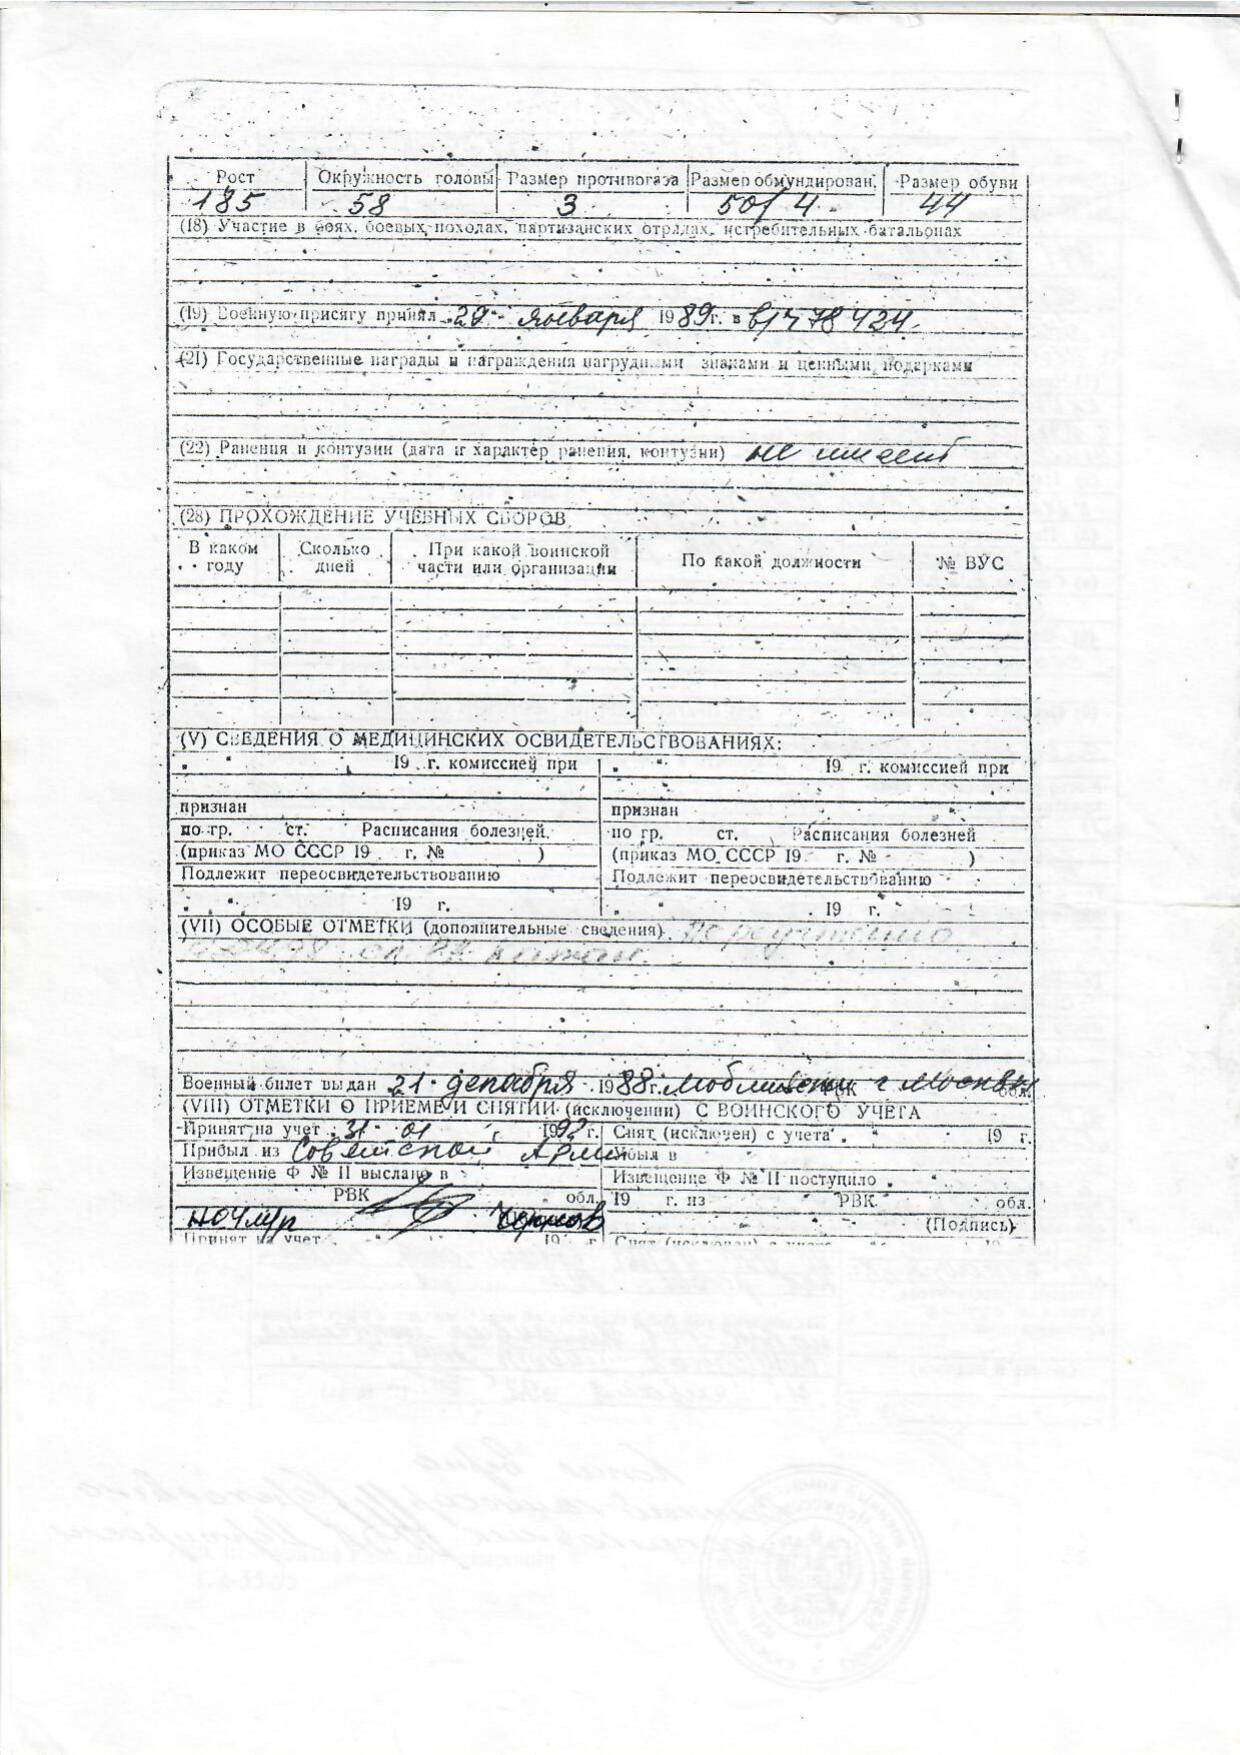 Рост Окружность головы Размер противогаза Размер обмундирован. Размер обуви
185 58 3 50/4 44
(18) Участие в боях, боевых походах, партизанских отрядах, истребительных батальонах
(19) Военную присягу принял 29 января 1989 г. в в/ч 78434.
(21) Государственные награды и награждения нагрудными знаками и ценными подарками
(22) Ранения и контузии (дата и характер ранения, контузии) не имеет
(28) ПРОХОЖДЕНИЕ УЧЕБНЫХ СБОРОВ
В каком году Сколько дней При какой воинской части или организации По какой должности № ВУС
(V) СВЕДЕНИЯ О МЕДИЦИНСКИХ ОСВИДЕТЕЛЬСТВОВАНИЯХ:
" " 19 г. комиссией при " " 19 г. комиссией при
признан признан
по гр. ст. Расписания болезней. по гр. ст. Расписания болезней
(приказ МО СССР 19 г. № ) (приказ МО СССР 19 г. № )
Подлежит переосвидетельствованию Подлежит переосвидетельствованию
" " 19 г. " " 19 г.
(VII) ОСОБЫЕ ОТМЕТКИ (дополнительные сведения)
Военный билет выдан 21 декабря 1988 г. г Москвы
(VIII) ОТМЕТКИ О ПРИЕМЕ И СНЯТИИ (исключении) С ВОИНСКОГО УЧЕТА
Принят на учет 31 01 1992 г. Снят (исключен) с учета " " 19 г.
Прибыл из Советской Армии Убыл в
Извещение Ф № 11 выслано в Извещение Ф № 11 поступило " "
РВК обл. 19 г. из РВК обл.
(Подпись)
Принят на учет " " 19 г. Снят (исключен) с учета " " 19 г.